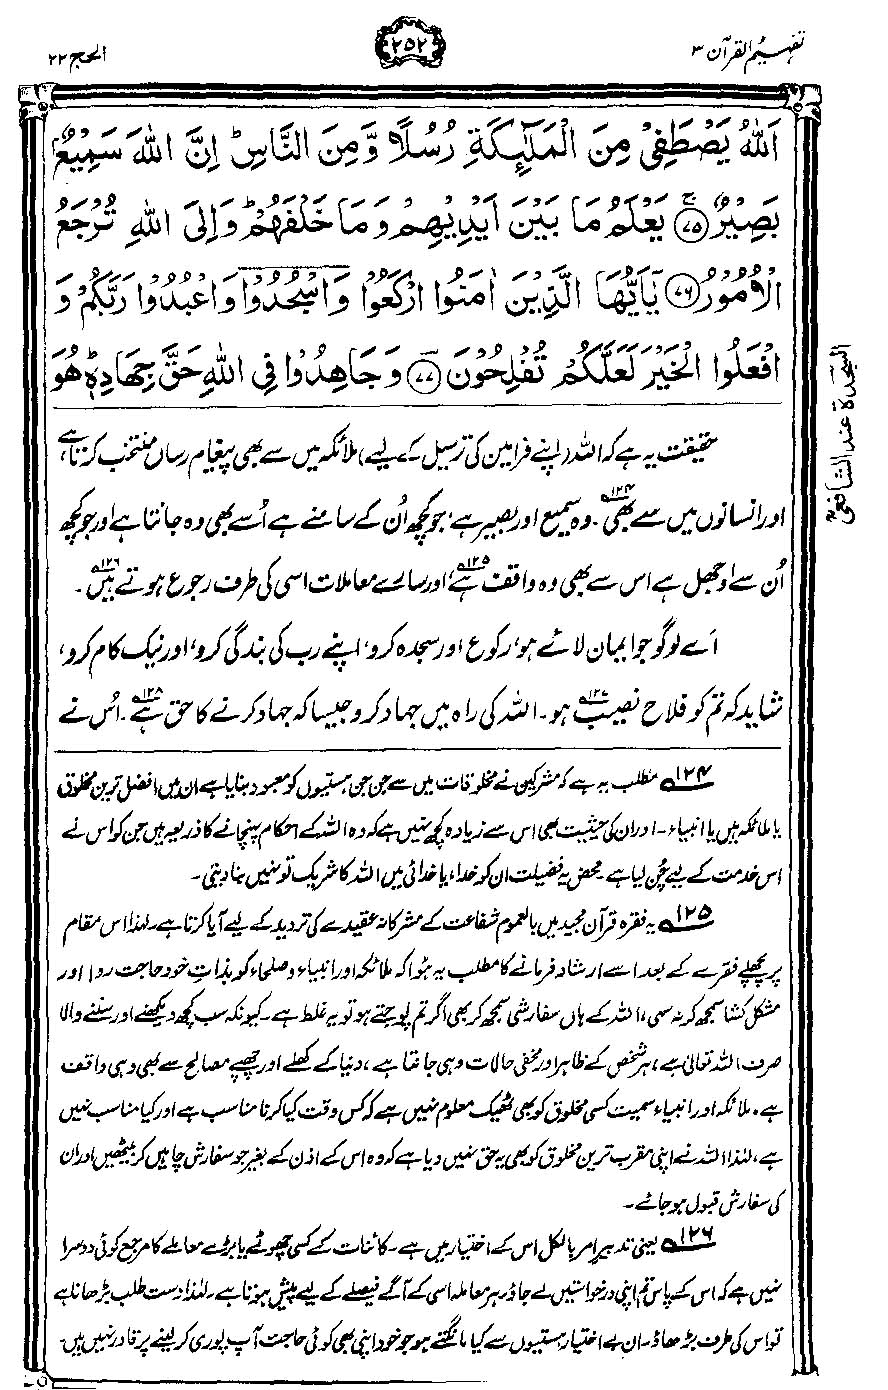 تفہیم القرآن ۳
۲۵۲
الحج ۲۲
اَللّٰهُ يَصْطَفِيْ مِنَ الْمَلٰٓئِكَةِ رُسُلًا وَّمِنَ النَّاسِ ؕ اِنَّ اللّٰهَ سَمِيْعٌۢ
بَصِيْرٌ ۚ﴿۷۵﴾ يَعْلَمُ مَا بَيْنَ اَيْدِيْهِمْ وَمَا خَلْفَهُمْ ؕ وَاِلَى اللّٰهِ تُرْجَعُ
الْاُمُوْرُ ﴿۷۶﴾ يٰٓاَيُّهَا الَّذِيْنَ اٰمَنُوا ارْكَعُوْا وَاسْجُدُوْا وَاعْبُدُوْا رَبَّكُمْ وَ
افْعَلُوا الْخَيْرَ لَعَلَّكُمْ تُفْلِحُوْنَ ﴿۷۷﴾ وَجَاهِدُوْا فِي اللّٰهِ حَقَّ جِهَادِهٖ ؕ هُوَ
السجدة عند الشافعي
حقیقت یہ ہے کہ اللہ (اپنے فرامین کی ترسیل کے لیے) ملائکہ میں سے بھی پیغام رساں منتخب کرتا ہے
اور انسانوں میں سے بھی۱۲۴۔ وہ سمیع اور بصیر ہے، جو کچھ اُن کے سامنے ہے اُسے بھی وہ جانتا ہے اور جو کچھ
اُن سے اوجھل ہے اس سے بھی وہ واقف ہے۱۲۵، اور سارے معاملات اسی کی طرف رجوع ہوتے ہیں۱۲۶۔
اَے لوگو جو ایمان لائے ہو، رکوع اور سجدہ کرو، اپنے رب کی بندگی کرو، اور نیک کام کرو،
شاید کہ تم کو فلاح نصیب ہو۱۲۷۔ اللہ کی راہ میں جہاد کرو جیسا کہ جہاد کرنے کا حق ہے۱۲۸۔ اُس نے
۱۲۴ مطلب یہ ہے کہ مشرکین نے مخلوقات میں سے جن جن ہستیوں کو معبود بنایا ہے ان میں افضل ترین مخلوق
یا ملائکہ ہیں یا انبیاء۔ اور ان کی حیثیت بھی اس سے زیادہ کچھ نہیں ہے کہ وہ اللہ کے احکام پہنچانے کا ذریعہ ہیں جن کو اس نے
اس خدمت کے لیے چُن لیا ہے۔ محض یہ فضیلت ان کو خدا، یا خدائی میں اللہ کا شریک تو نہیں بنا دیتی۔
۱۲۵ یہ فقرہ قرآن مجید میں بالعموم شفاعت کے مشرکانہ عقیدے کی تردید کے لیے آیا کرتا ہے۔ لہٰذا اس مقام
پر پچھلے فقرے کے بعد اسے ارشاد فرمانے کا مطلب یہ ہوا کہ ملائکہ اور انبیاء و صلحاء کو بذاتِ خود حاجت روا اور
مشکل کشا سمجھ کر نہ سہی، اللہ کے ہاں سفارشی سمجھ کر بھی اگر تم پوجتے ہو تو یہ غلط ہے۔ کیونکہ سب کچھ دیکھنے اور سننے والا
صرف اللہ تعالیٰ ہے، ہر شخص کے ظاہر اور مخفی حالات وہی جانتا ہے، دنیا کے کھلے اور چھپے مصالح سے بھی وہی واقف
ہے، ملائکہ اور انبیاء سمیت کسی مخلوق کو بھی ٹھیک معلوم نہیں ہے کہ کس وقت کیا کرنا مناسب ہے اور کیا مناسب نہیں
ہے، لہٰذا اللہ نے اپنی مقرب ترین مخلوق کو بھی یہ حق نہیں دیا ہے کہ وہ اس کے اذن کے بغیر جو سفارش چاہیں کر بیٹھیں اور ان
کی سفارش قبول ہو جائے۔
۱۲۶ یعنی تدبیرِ امر بالکل اس کے اختیار میں ہے۔ کائنات کے کسی چھوٹے یا بڑے معاملے کا مرجع کوئی دوسرا
نہیں ہے کہ اس کے پاس تم اپنی درخواستیں لے جاؤ۔ ہر معاملہ اسی کے آگے فیصلے کے لیے پیش ہوتا ہے۔ لہٰذا دست طلب بڑھانا ہے
تو اس کی طرف بڑھاؤ۔ ان بے اختیار ہستیوں سے کیا مانگتے ہو جو خود اپنی بھی کوئی حاجت آپ پوری کر لینے پر قادر نہیں ہیں۔